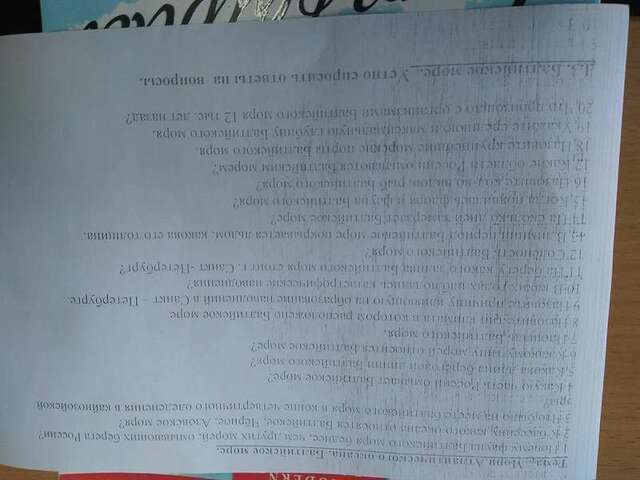 Тема. Моря Атлантического океана. Балтийское море.
1 Почему фауна Балтийского моря беднее, чем других морей, омывающих берега России?
2 К бассейну какого океана относятся Балтийское, Чёрное, Азовское моря?
3 Что было на месте Балтийского моря в конце четвертичного оледенения в кайнозойской
эры?
4 Какую часть России омывает Балтийское море?
5 Какова длина береговой линии Балтийского моря?
6 К какому типу морей относится Балтийское море?
7 Площадь Балтийского моря.
8 Назовите тип климата в котором расположено Балтийское море
9 Назовите причину, влияющую на образование наводнений в Санкт – Петербурге.
10 В каких годах были самые катастрофические наводнения?
11 На берегу какого залива Балтийского моря стоит г. Санкт -Петербург?
12 Солёность Балтийского моря?
13 В зимний период Балтийское море покрывается льдом, какова его толщина.
14 На сколько дней замерзает Балтийское море?
15 Когда появилась флора и фауна Балтийского моря?
16 Назовите кол-во видов рыб Балтийского моря?
17 Какие области России омываются Балтийским морем?
18 Назовите крупнейшие морские порты Балтийского моря.
19 Укажите среднюю и максимальную глубину Балтийского моря.
20 Что произошло с организмами Балтийского моря 12 тыс. лет назад?
Балтийское море. Устно спросить ответы на вопросы.
MODERN